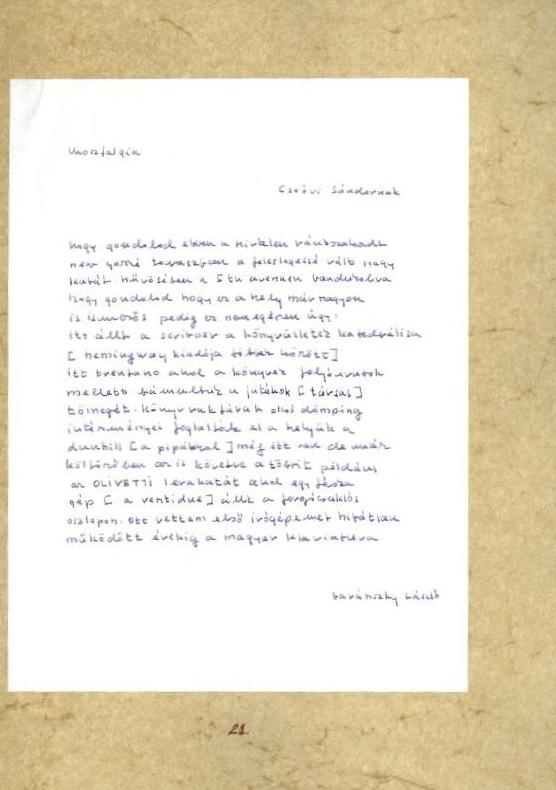 nosztalgia
Csoóri Sándornak
hogy gondolod ebben a hirtelen ránkszakadt
new yorki tavaszban a feleslegessé vált nagy
kabát hűvösében a 5th avenuen bandukolva
hogy gondolod hogy ez a hely már nagyon
is ismerős pedig ez nem egészen úgy:
itt állt a scribner a könyvüzletek katedrálisa
[ hemingway kiadója többek között ]
itt brentano ahol a könyvek folyóiratok
mellett bámultuk a játékok [ társas ]
tömegét. könyvraktárak olcsó dömping
intézményei foglalták el a helyük a
dunhill [ a pipákkal ] még itt van de már
költözőben az is követve a többit például
az OLIVETTI lerakatát ahol egy táska
gép [ a ventidue ] állt a forgócsaklós
oszlopon. ott vettem első írógépemet hibátlan
működött évekig a magyar klaviatúra
baránszky lászló
21.